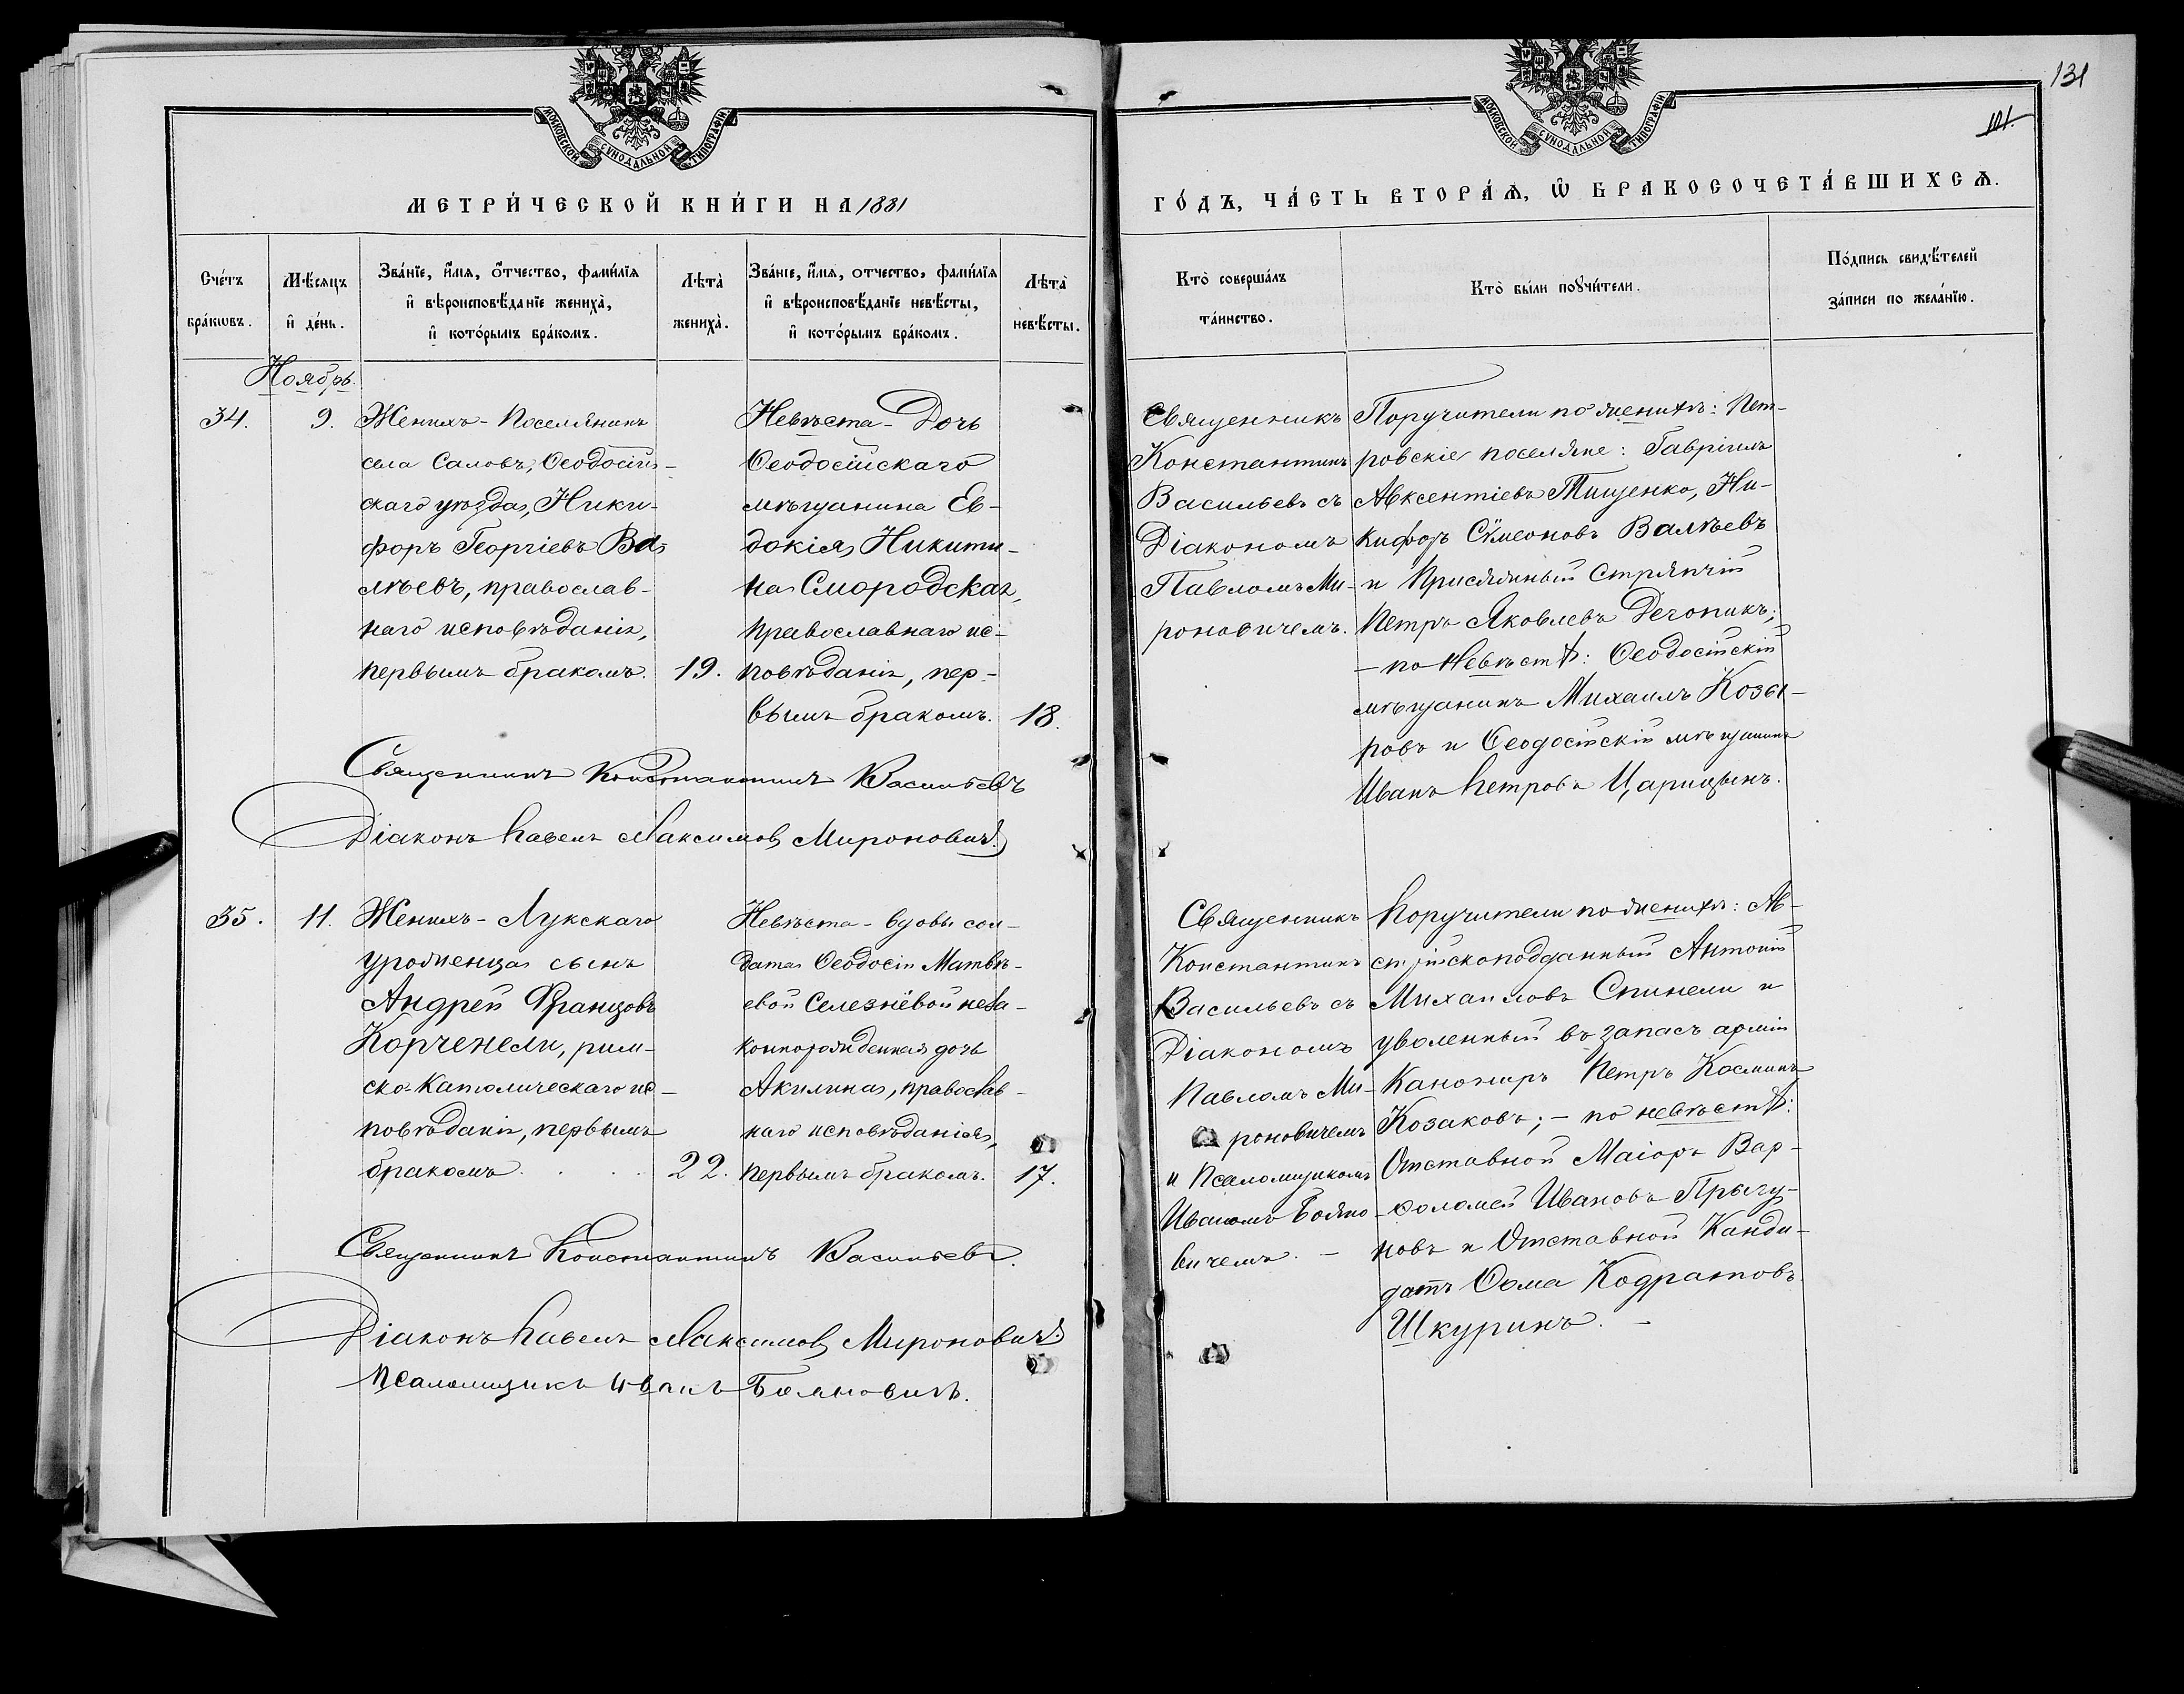 131
101.
МОСКОВСКОЙ СѴНОДАЛЬНОЙ ТИПОГРАФІИ
МОСКОВСКОЙ СѴНОДАЛЬНОЙ ТИПОГРАФІИ
МЕТРИ́ЧЕСКОЙ КНИ́ГИ НА 1881
ГО́ДЪ, ЧА́СТЬ ВТОРА́Ѧ, Ѡ҆ БРАКОСОЧЕТА́ВШИХСѦ.
Сче́тъ
бра́кωвъ.
Мѣ́сѧцъ
и҆ де́нь.
Зва́нїе, и҆́мѧ, ѻ҆́тчество, фами́лїѧ
и҆ вѣроисповѣ́данїе жениха̀,
и҆ кото́рымъ бра́комъ.
Лѣта̀
жениха̀.
Зва́нїе, и҆́мѧ, отчество, фами́лїѧ
и҆ вѣроисповѣ́данїе невѣ́сты,
и҆ кото́рымъ бра́комъ.
Лѣта̀
невѣ́сты.
Кто̀ соверша́лъ
та́инство.
Кто̀ бы́ли поꙋчи́тели.
По́дпись свидѣ́телей
за́писи по жела́нїю.
Ноябрь.
34.
9.
Женихъ - Поселянинъ
села Саловъ, Ѳеодосій-
скаго уѣзда, Ники-
форъ Георгіевъ Ва-
лѣевъ, православ-
наго исповѣданія,
первымъ бракомъ.
19.
Невѣста - Дочь
Ѳеодосійскаго
мѣщанина Ев-
докія Никити-
на Смородская,
православнаго ис-
повѣданія, пер-
вымъ бракомъ.
18.
Священникъ
Константинъ
Васильевъ съ
Діакономъ
Павломъ Ми-
роновичемъ.
Поручители по женихѣ: Пет-
ровскіе поселяне: Гавріилъ
Авксентіевъ Тищенко, Ни-
кифоръ Сѷмеоновъ Валѣевъ
и Присяжный Стряпчій
Петръ Яковлевъ
- по невѣстѣ: Ѳеодосійскій
мѣщанинъ Михаилъ Козы-
ровъ и Ѳеодосійскій мѣщанинъ
Иванъ Петровъ Царицынъ.
Священникъ Константинъ Васильевъ
Діаконъ Павелъ Максимовъ Мироновичъ
35.
11.
Женихъ - Лукскаго
уроженца сынъ
Андрей Францовъ
Корченели, рим-
ско-Католическаго ис-
повѣданія, первымъ
бракомъ.
22.
Невѣста - вдовы сол-
дата Ѳеодосіи Матвѣ-
евой Селезнёвой неза-
коннорожденная дочь
Акилина, православ-
наго исповѣданія,
первымъ бракомъ.
17.
Священникъ
Константинъ
Васильевъ съ
Діакономъ
Павломъ Ми-
роновичемъ
и Псаломщикомъ
Иваномъ Бояно-
вичемъ. -
Поручители по женихѣ: Ав-
стрійскоподданный Антоній
Михаиловъ Спинели и
уволенный въ запасъ арміи
Канониръ Петръ Косминъ
Козаковъ; - по невѣстѣ:
Отставной Маіоръ Вар-
ѳоломей Ивановъ Прыгу-
новъ и Отставной Канди-
датъ Ѳома Кодратовъ
Шкуринъ. -
Священникъ Константинъ Васильевъ.
Діаконъ Павелъ Максимовъ Мироновичъ
псаломщикъ Иванъ Бояновичъ.